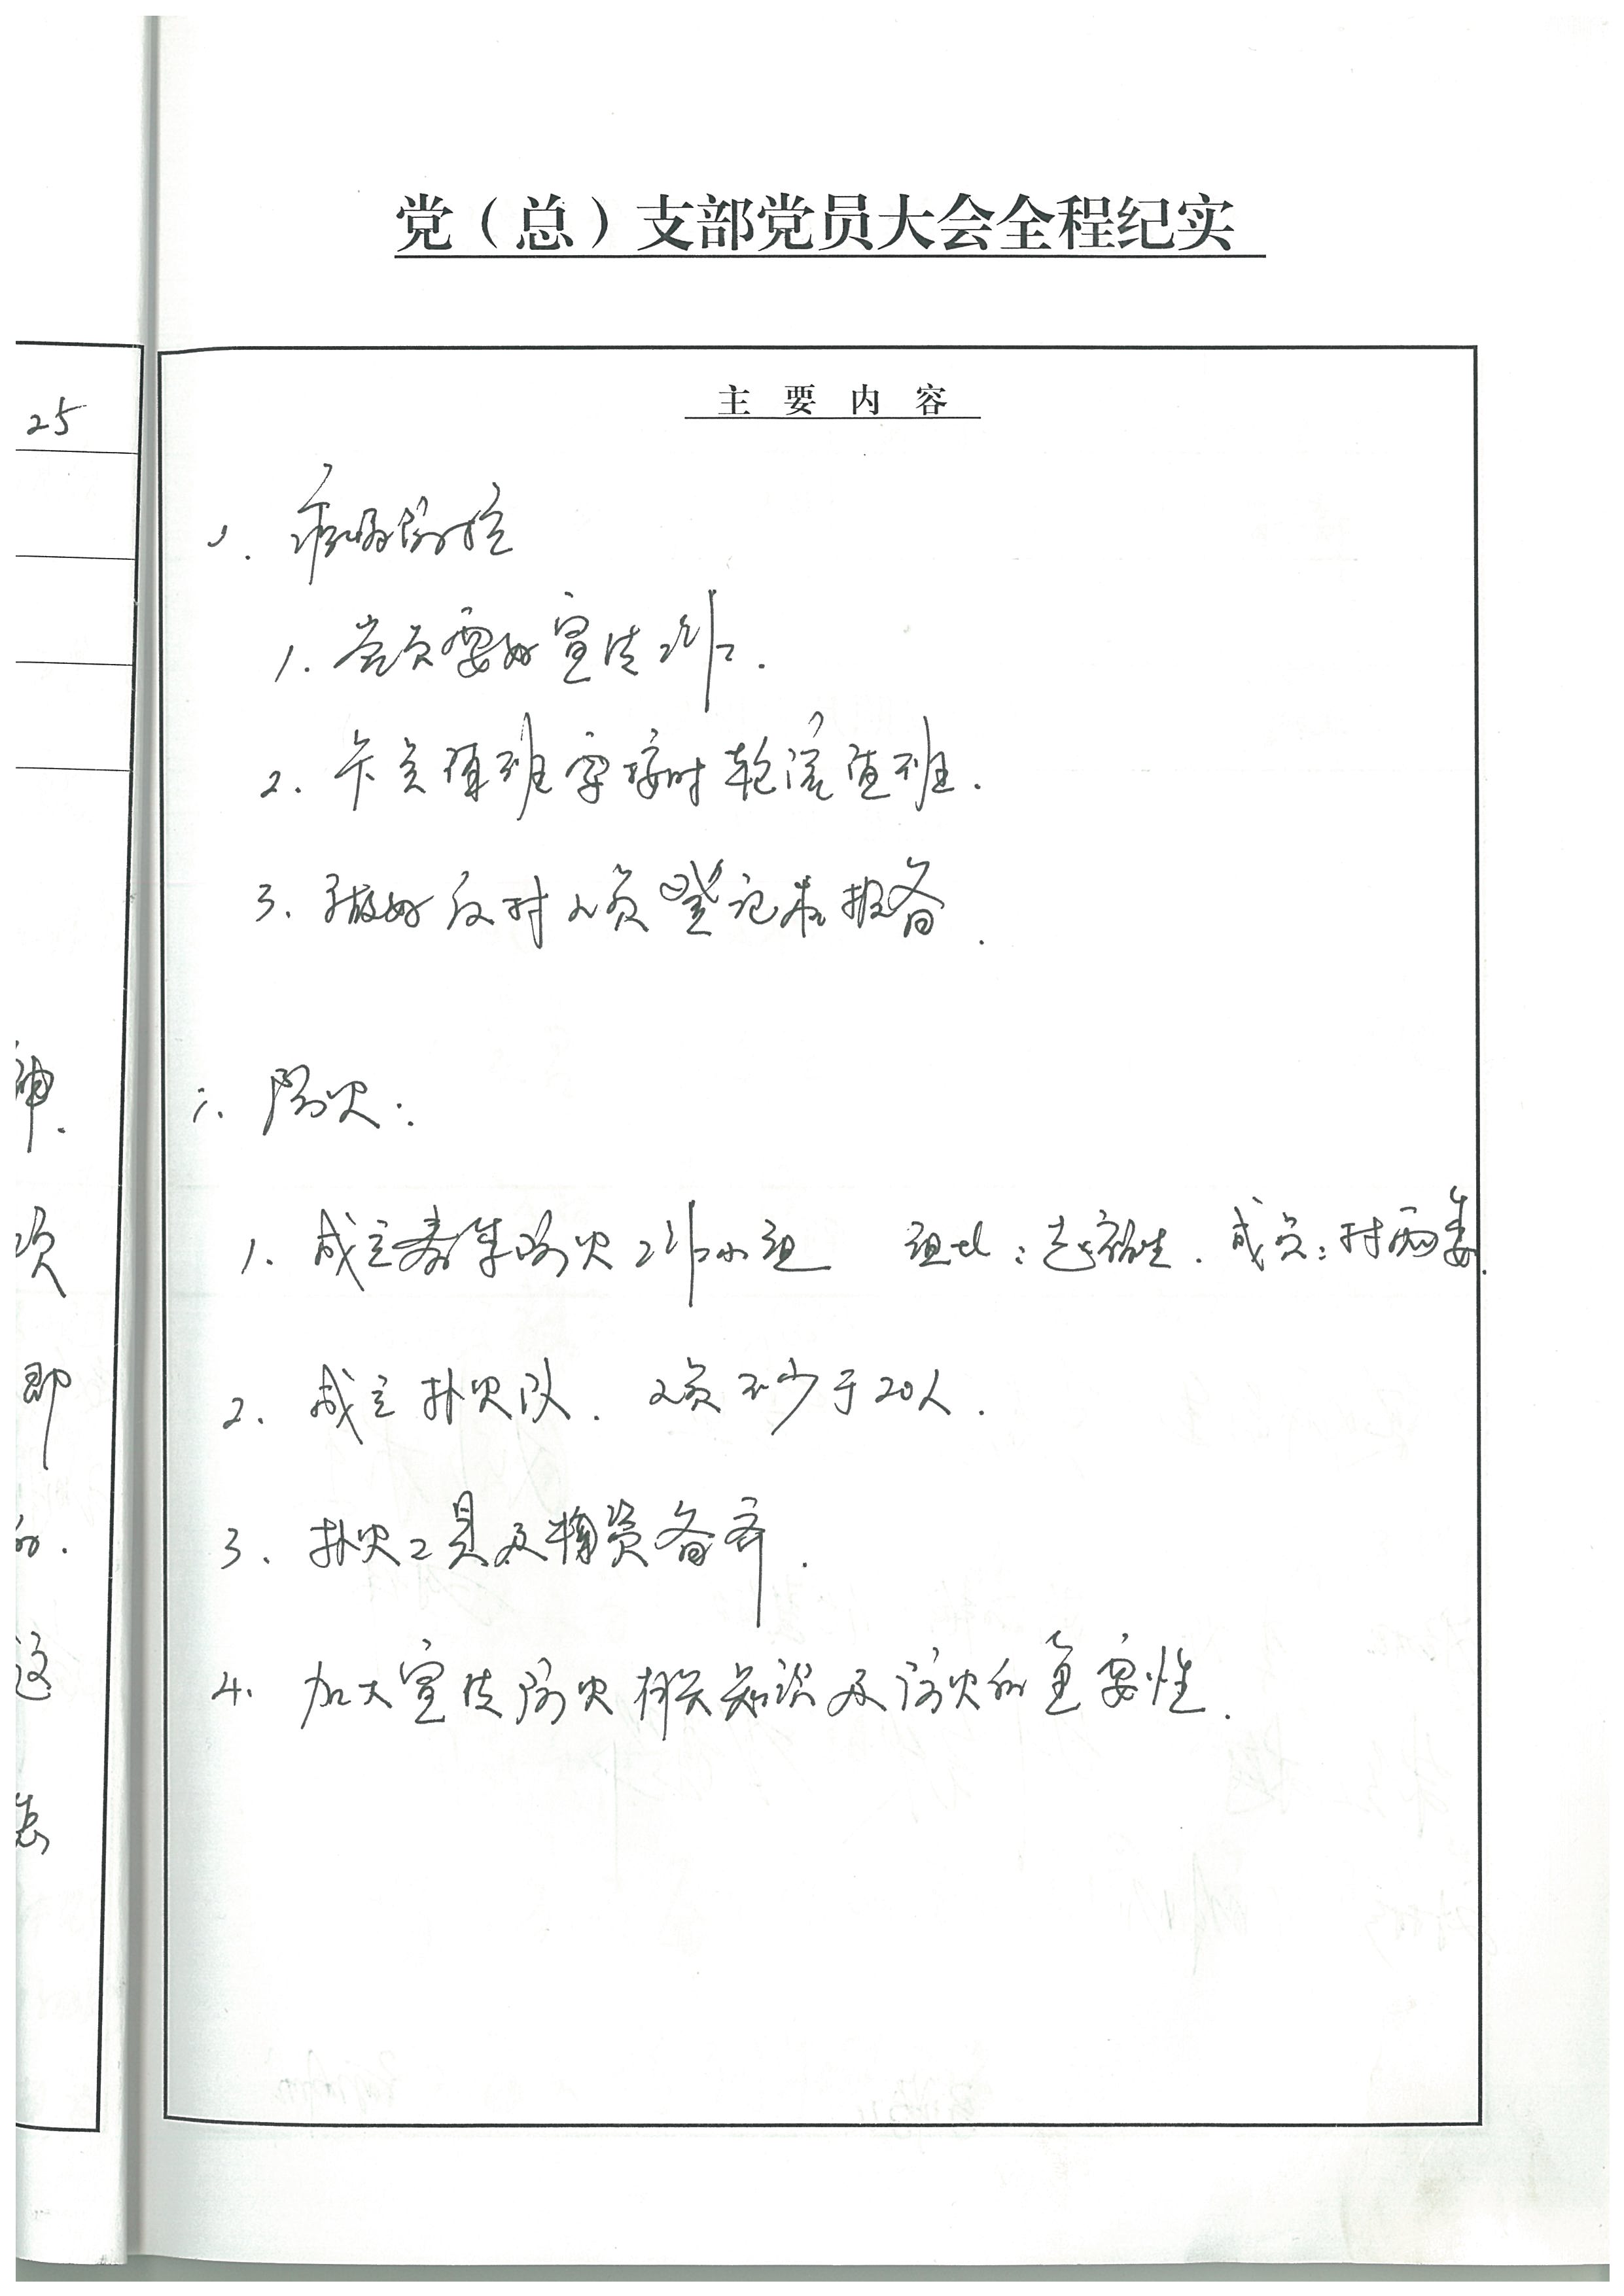 党（总）支部党员大会全程纪实
主要内容
25
神.
次
即
的.
这
志
1. 疫情防控
1. 党员要好宣传工作.
2. 卡关值班 按时轮流值班.
3. 做好返村人员登记表报备.
二. 防火：
1. 成立春季防火工作小组 组长： 成员：村两委.
2. 成立扑火队. 人员不少于20人.
3. 扑火工具及物资备齐.
4. 加大宣传防火相关知识及防火的重要性.